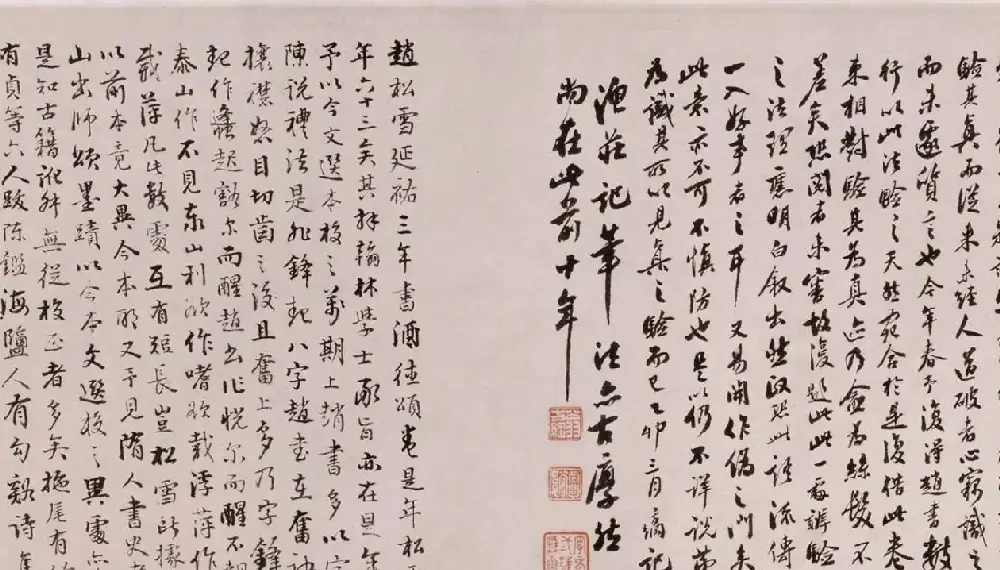 驗其真而從來未經人道破者心竊識之
而未遽質言也今年春予復得趙書數
行以此法驗之天然宛合於是復借此卷
來相對驗其為真迹乃僉為絲髮不
差矣然閱者未審故復題此此一處辨驗
之法理應明白叙出然 照此語流傳
一入好事者之耳又易開作偽之門矣
此意亦不可不慎防也是以仍不詳說第
為識其所以見真之驗而已乙卯三月 記
漁莊記筆法亦古厚然
尚在此前十年
趙松雪延祐三年書酒德頌卷是年松
年六十三矣其拜翰林學士承旨亦在是年
予以今文選本校之萬期上趙書多以字
陳說禮法是非鋒起八字趙書在奮袂
攘襟怒目切齒之後且奮上多乃字鋒
起作蠭起豁尔而醒趙書作怳尔而醒不
泰山作不見泰山利欲作嗜欲載浮萍作
載萍凡此數處互有短長豈松雪所據
以前本竟大異今本耶又予見隋人書史
山出師頌墨蹟以今本文選校之異處亦
是知古籍訛舛無從校正者多矣卷尾有
有貞等六人跋陳鑑海鹽人有句 詩